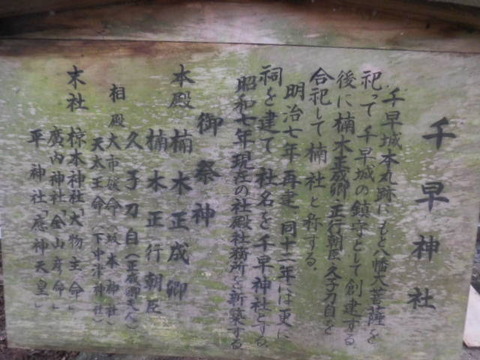 千早神社
千早城本丸跡にもと八幡大菩薩を
祀って千早城の鎮守として創建する
後に楠木正成卿・正行朝臣・久子刀自を
合祀して楠社と称する。
明治七年再建、同十二年には更に
祠を建て、社名を千早神社とする
昭和七年現在の社殿社務所を新築する
御祭神
本殿 楠木正成卿
楠木正行朝臣
久子刀自（正成卿夫人）
相殿 大市姫命（坂本神社）
天太玉命（下中津神社）
末社 椋本神社「大物主命」
廣内神社「金山彦命」
平神社「應神天皇」